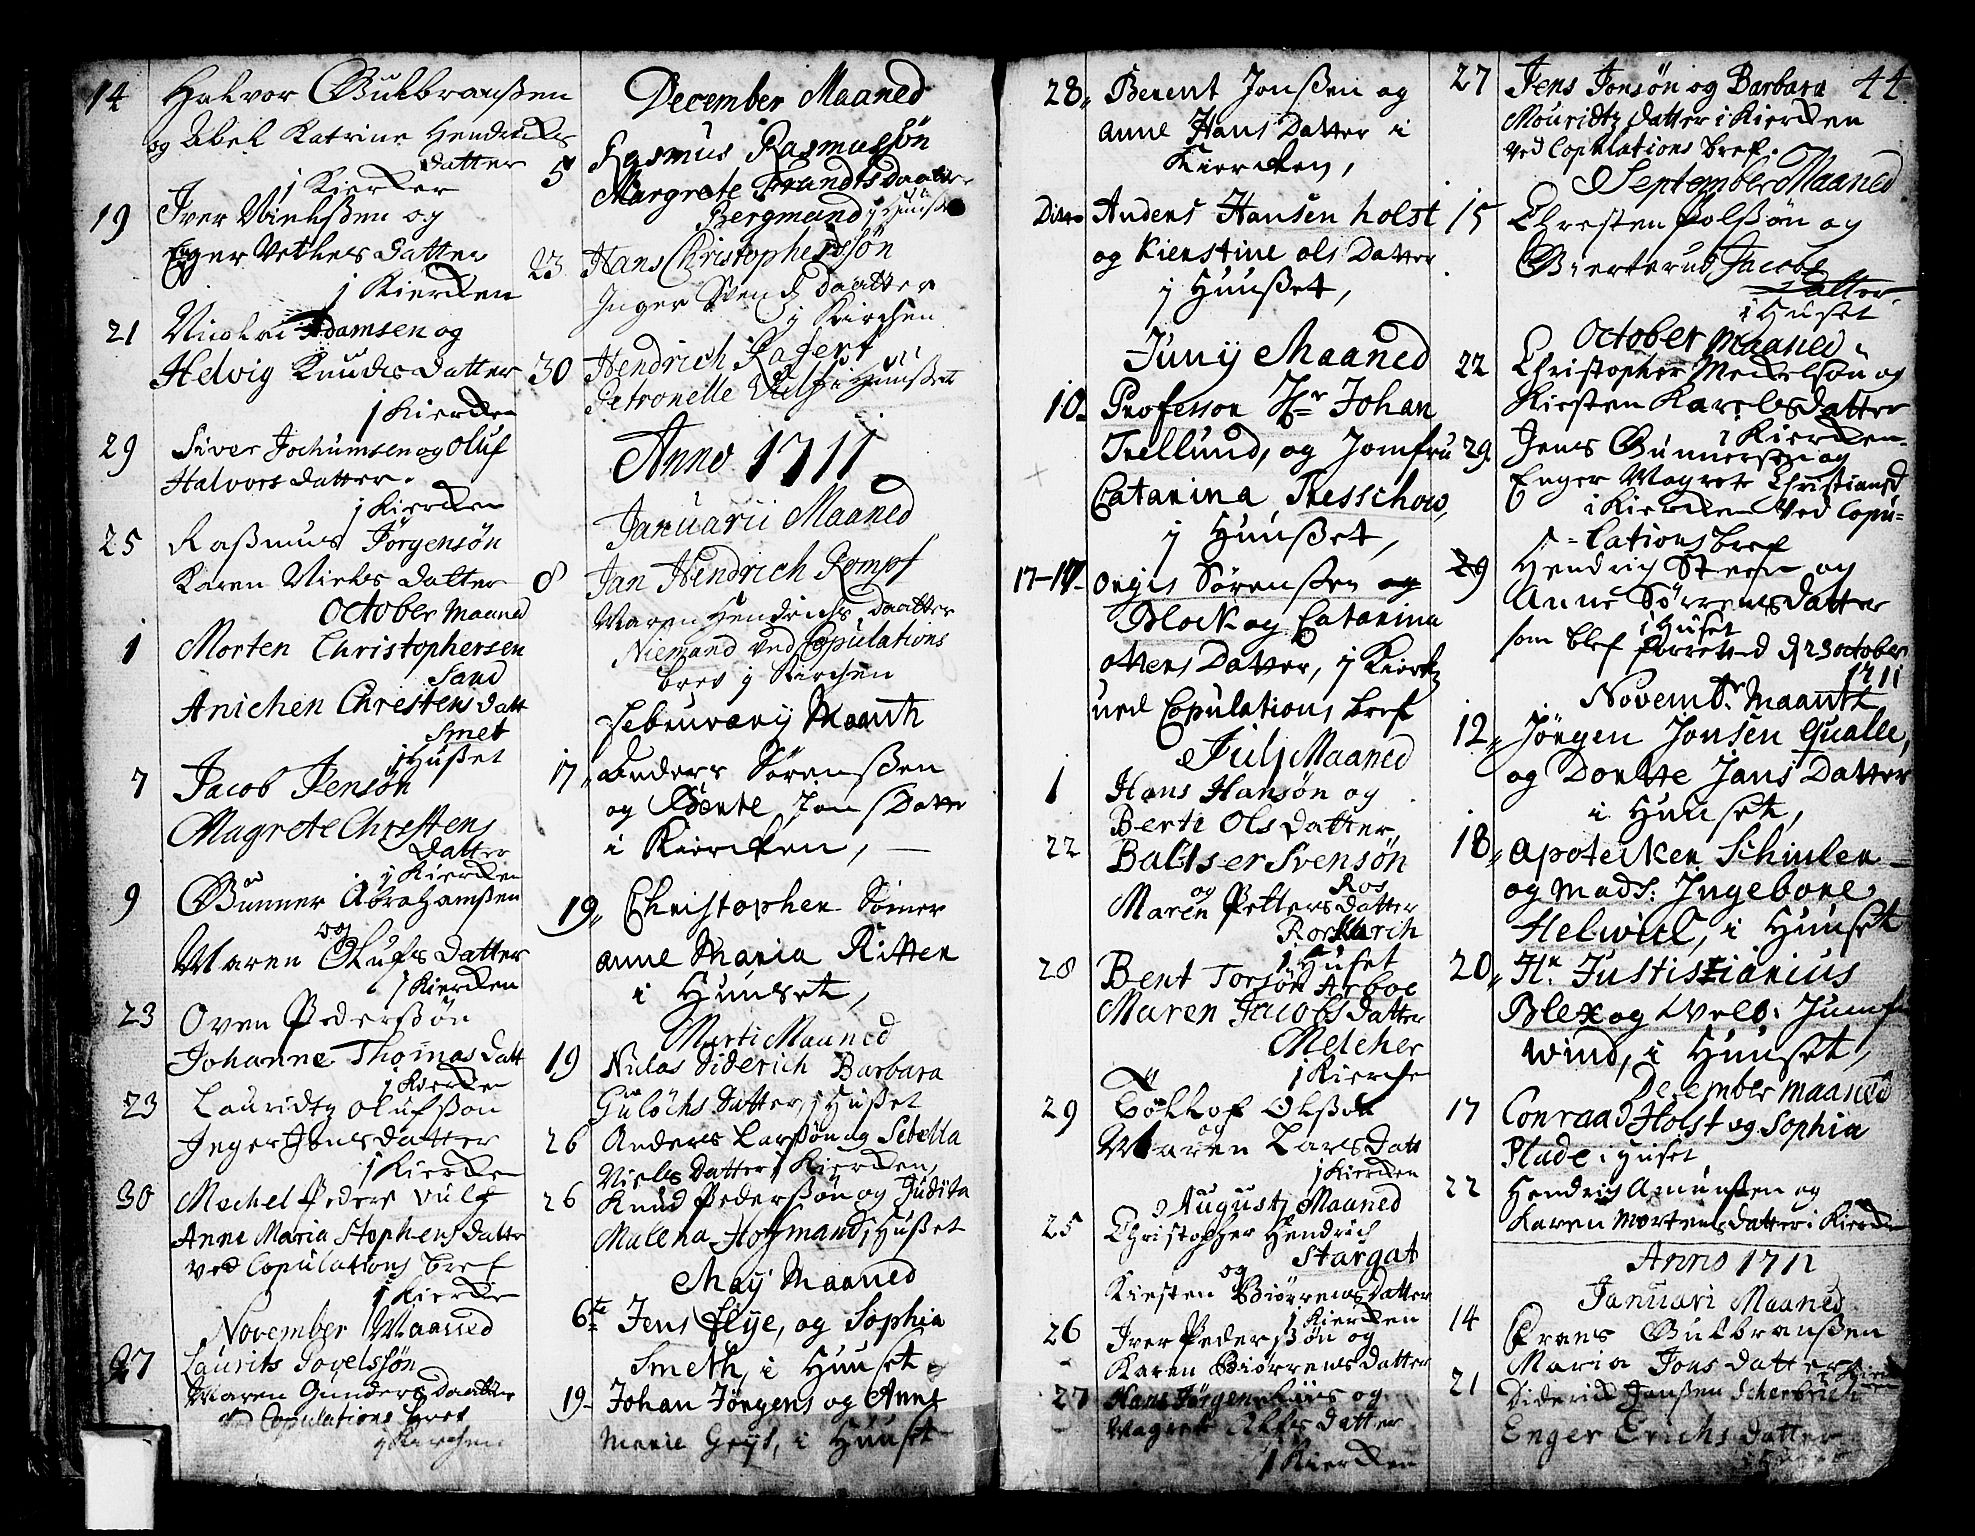 14 Halvor Gulbranßen
og Abel Katrine Hendricks
datter
j Kiercken
19 Iver Nielsßen og
Eger Vetlesdatter
j Kiercken
21 Nicolai Adamsen og
Helvig Knudsdatter
j Kiercken
29 Siver Jochumsen og Oluf
Halvorsdatter.
j Kiercken
25 Raßmus Jörgensön
Karen Nielsdatter
October Maaned
1 Morten Christophersen
Sand
Anichen Christens datt
Smet
j Hußet
7 Jacob Jensön
Magrete Christens
datter
j Kiercken
9 Gunner Abrahamßen
og
Maren Olufsdatter
j Kiercken
23 Oven Pederßön
Johanne Thomas datt
j Kiercken
23 Lauridtz Olufsson
Inger Jensdatter
j Kiercken
30 Mechel Peders Vulf
Anne Maria Stephensdatter
ved Copulations bref
j Kiercke
November Maaned
27 Laurits Povelssön
Maren Gunders daatter
ved Copulations bref
j Kirchen
December Maaned
5 Rasmus Rasmussön
Margrete Trundtsdaatter
Bergmand j Hußet
23 Hans Christophersön
Inger Svends daatter
j Kirchen
30 Hendrich
Petronelle Vulf i Hußet
Anno 1711
Januarii Maaned
8 Jan Hendrich Rompf
Maren Hendrichs daatter
Niemand ved Copulations
brev j Kirchen
Februarij Maanth
17, Anders Sörenßen
og Dorte Jons Datter
i Kiercken,
19, Christopher Sömer
anne Maria Ritter
i Huuset,
Marti Maaned
19 Diderich Barbara
datter j Hußet
26 Anders Larsön og Sebella
Nielsdatter j Kiercken,
26 Knud Pederßön og Judita
Malena Hofmand j Hußet
Maij Maaned
6te Jens Flye, og Sophia
Smeth, i Huuset.
19- Johan Jörgens og Anne
Marie Grijs, i Huuset
28, Berent Jonßen og
anne Hans Datter i
Kiercken,
Ditto Anders Hansen holst
og Kierstine ols Datter
j Huußet,
Junij Maaned
10- Professor Hr Johan
Trellund, og Jomfru
Catarina Tresschow,
j Huußet,
17-17- Sörenßen og
Block og Catarina
ottens Datter, j Kierck
ved Copulations bref
Julj Maaned
1 Hans Hansön og
Berte Olsdatter,
22 Baltser Svensön
og Ros
Maren Pettersdatter
j Huset
28 Bent Torsön Arboe
Maren Jacobsdatter
Melcher
j Kierche
29 Olßön
og
Maren Lars Datt
j Kiercken
Augustj Maaned
25 Christopher Hendrich
Stargat
og
Kiesten Biörrensdatter
j Kiercken
26 Iver Pederßön og
Karen Biörrensdatter
27 Hans Jörgen og
Magrete datter
j Kiercken
27 Jens Jonsön og Barbara 44.
Mouridtz datter i Kiercken
ved Copulations bref.
September Maaned
15 Christen Polssön og
Jacobs
datter
i Huset
October Maaned
22 Christopher Meckelsön og
Kiesten Karelsdatter
j Kiercken.
29 Jens Gunnerßen og
Enger Magrete Christiansd
i Kiercken ved Copu=
=lations bref
29 Hendrich Steen og
Anne Sörrensdatter
i Huset
som blef forretted d 23 october
1711
Novembr. Maanth
12, Jörgen Jonsen Qualle,
og Dorthe Jans Datter
i Huuset,
18, Apotecker Schiuler
og Mads: Ingebore
Helwich, i Huuset
20, Hr. Justistiarius
Blex og Velb: Jumfr
Wind, i Huuset,
December maaned
17 Conraad Holst og Sophia
Plade i Huset
22 Hendrich Amunßen og
Karen Mortensdatter i Kiercke
Anno 1712
Januari Maaned
14 Frans Gulbranßen
Maria Jonsdatter
21 Diderich Janßen
Enger Erichs datter